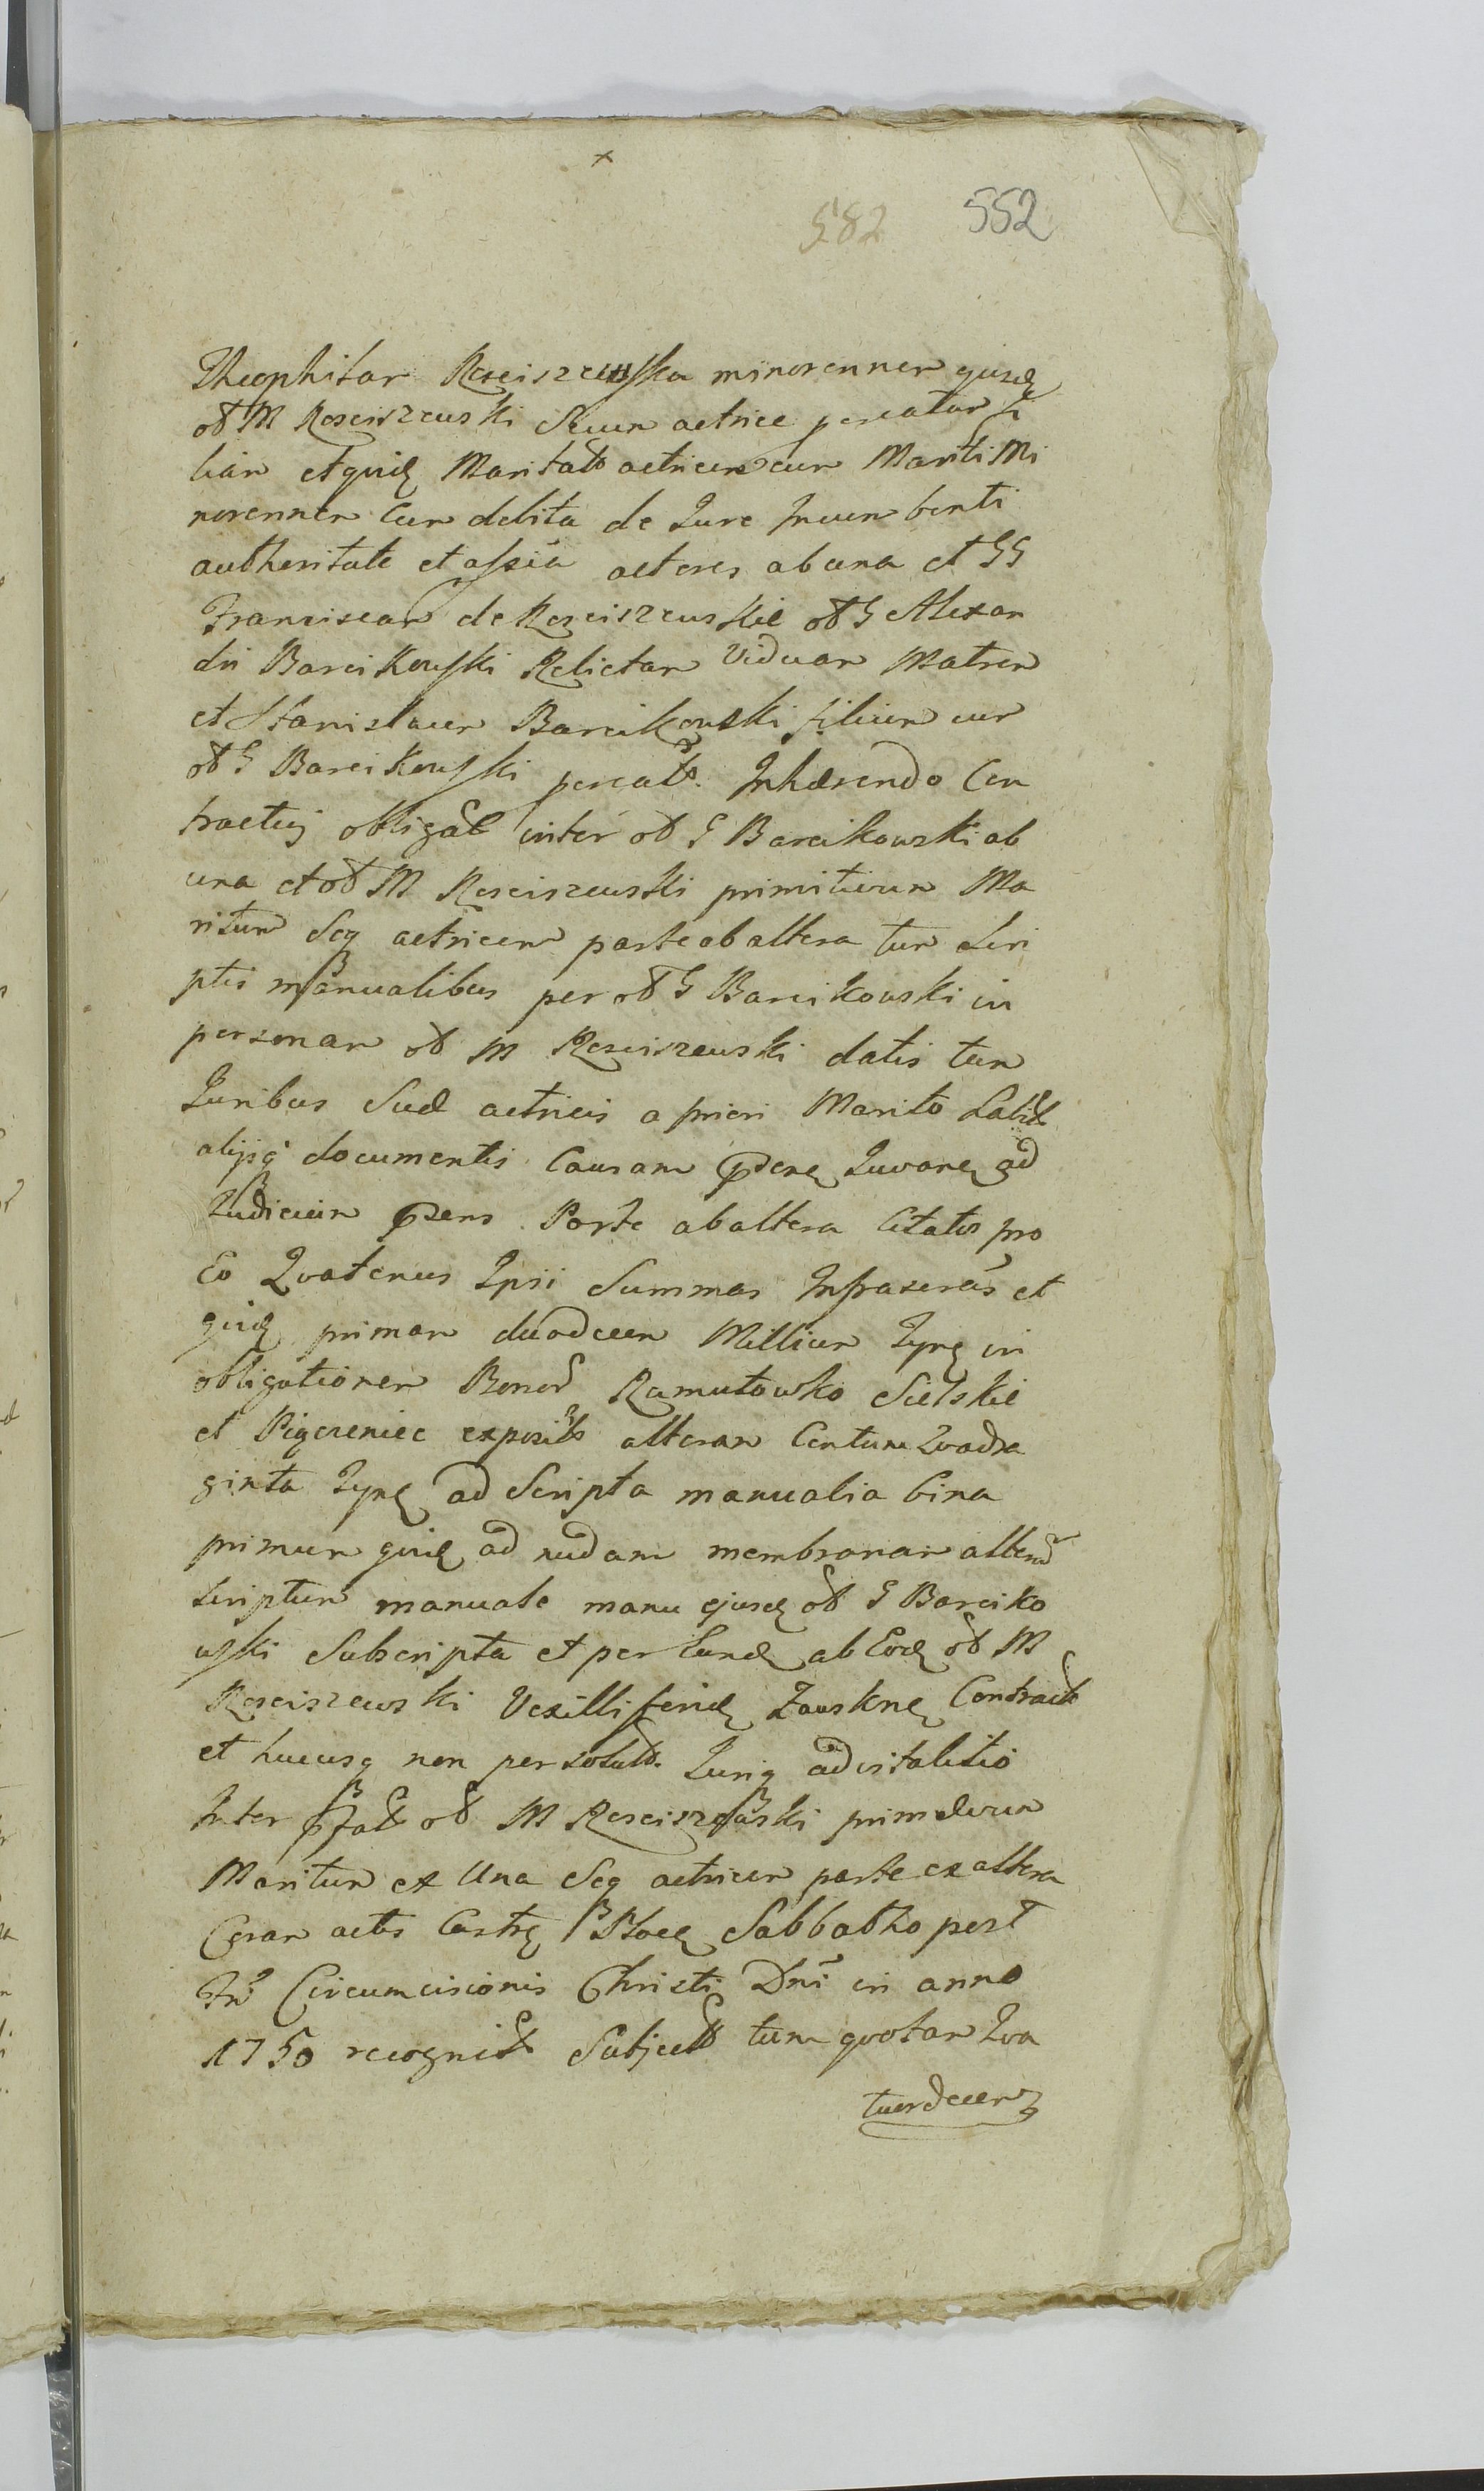 582 552
Theophilam Rosciszewska minorennem ejusd
ol M Rosciszewski Secum actrice procreatam fi
liam et quid Maritats actricem cum Mariti Mi
norennem Cum debita de Jure Incumbenti
authoritate et assia actores ab una et GG
Franciscam de Rosciszewskie ol G Alexan
dri Barcikowski Relictam Viduam Matrem
et Stanislaum Barcikowski filium cum
ol G Barcikowski procrats. Inhærendo Con
tractuj obligat inter ol G Barcikowski ab
una et ol M Rosciszewski primitivum Ma
ritum Seq actricem parte ab altera tum Scri
ptis manualibus per ol G Barcikowski in
personam ol M Rosciszewski datis tum
Juribus Suæ actricis a priori Marito
alijsq documentis Causam Juvare ad
Judicium pzens Parte ab altera Citatos pro
Eo Quatenus Ipsi Summas Infrascras et
quid primam duodecem Millium Tynf in
obligationem Bonor Ramutowko Sielskie
et Pigczeniec exposits alteram Centum Quadra
ginta Tynf ad Scripta manualia bina
primum quid ad nudam membranam alterud
scriptum manuale manu ejusd ol G Barciko
wski Subscripta et per Eund ab Eod ol M
Rosciszewski Vexilliferid Zawskne Contract
et hucusq non persoluts. Juriq advitalitio
Inter pfat ol M Rosciszewski primævum
Maritum ex Una Seq actricem parte ex altera
Coram actis Castre Ploce Sabbatho post
Fm Circumcisionis Christi Dni in anno
1750 recognit Subject tum quotam Qua
tuordecem